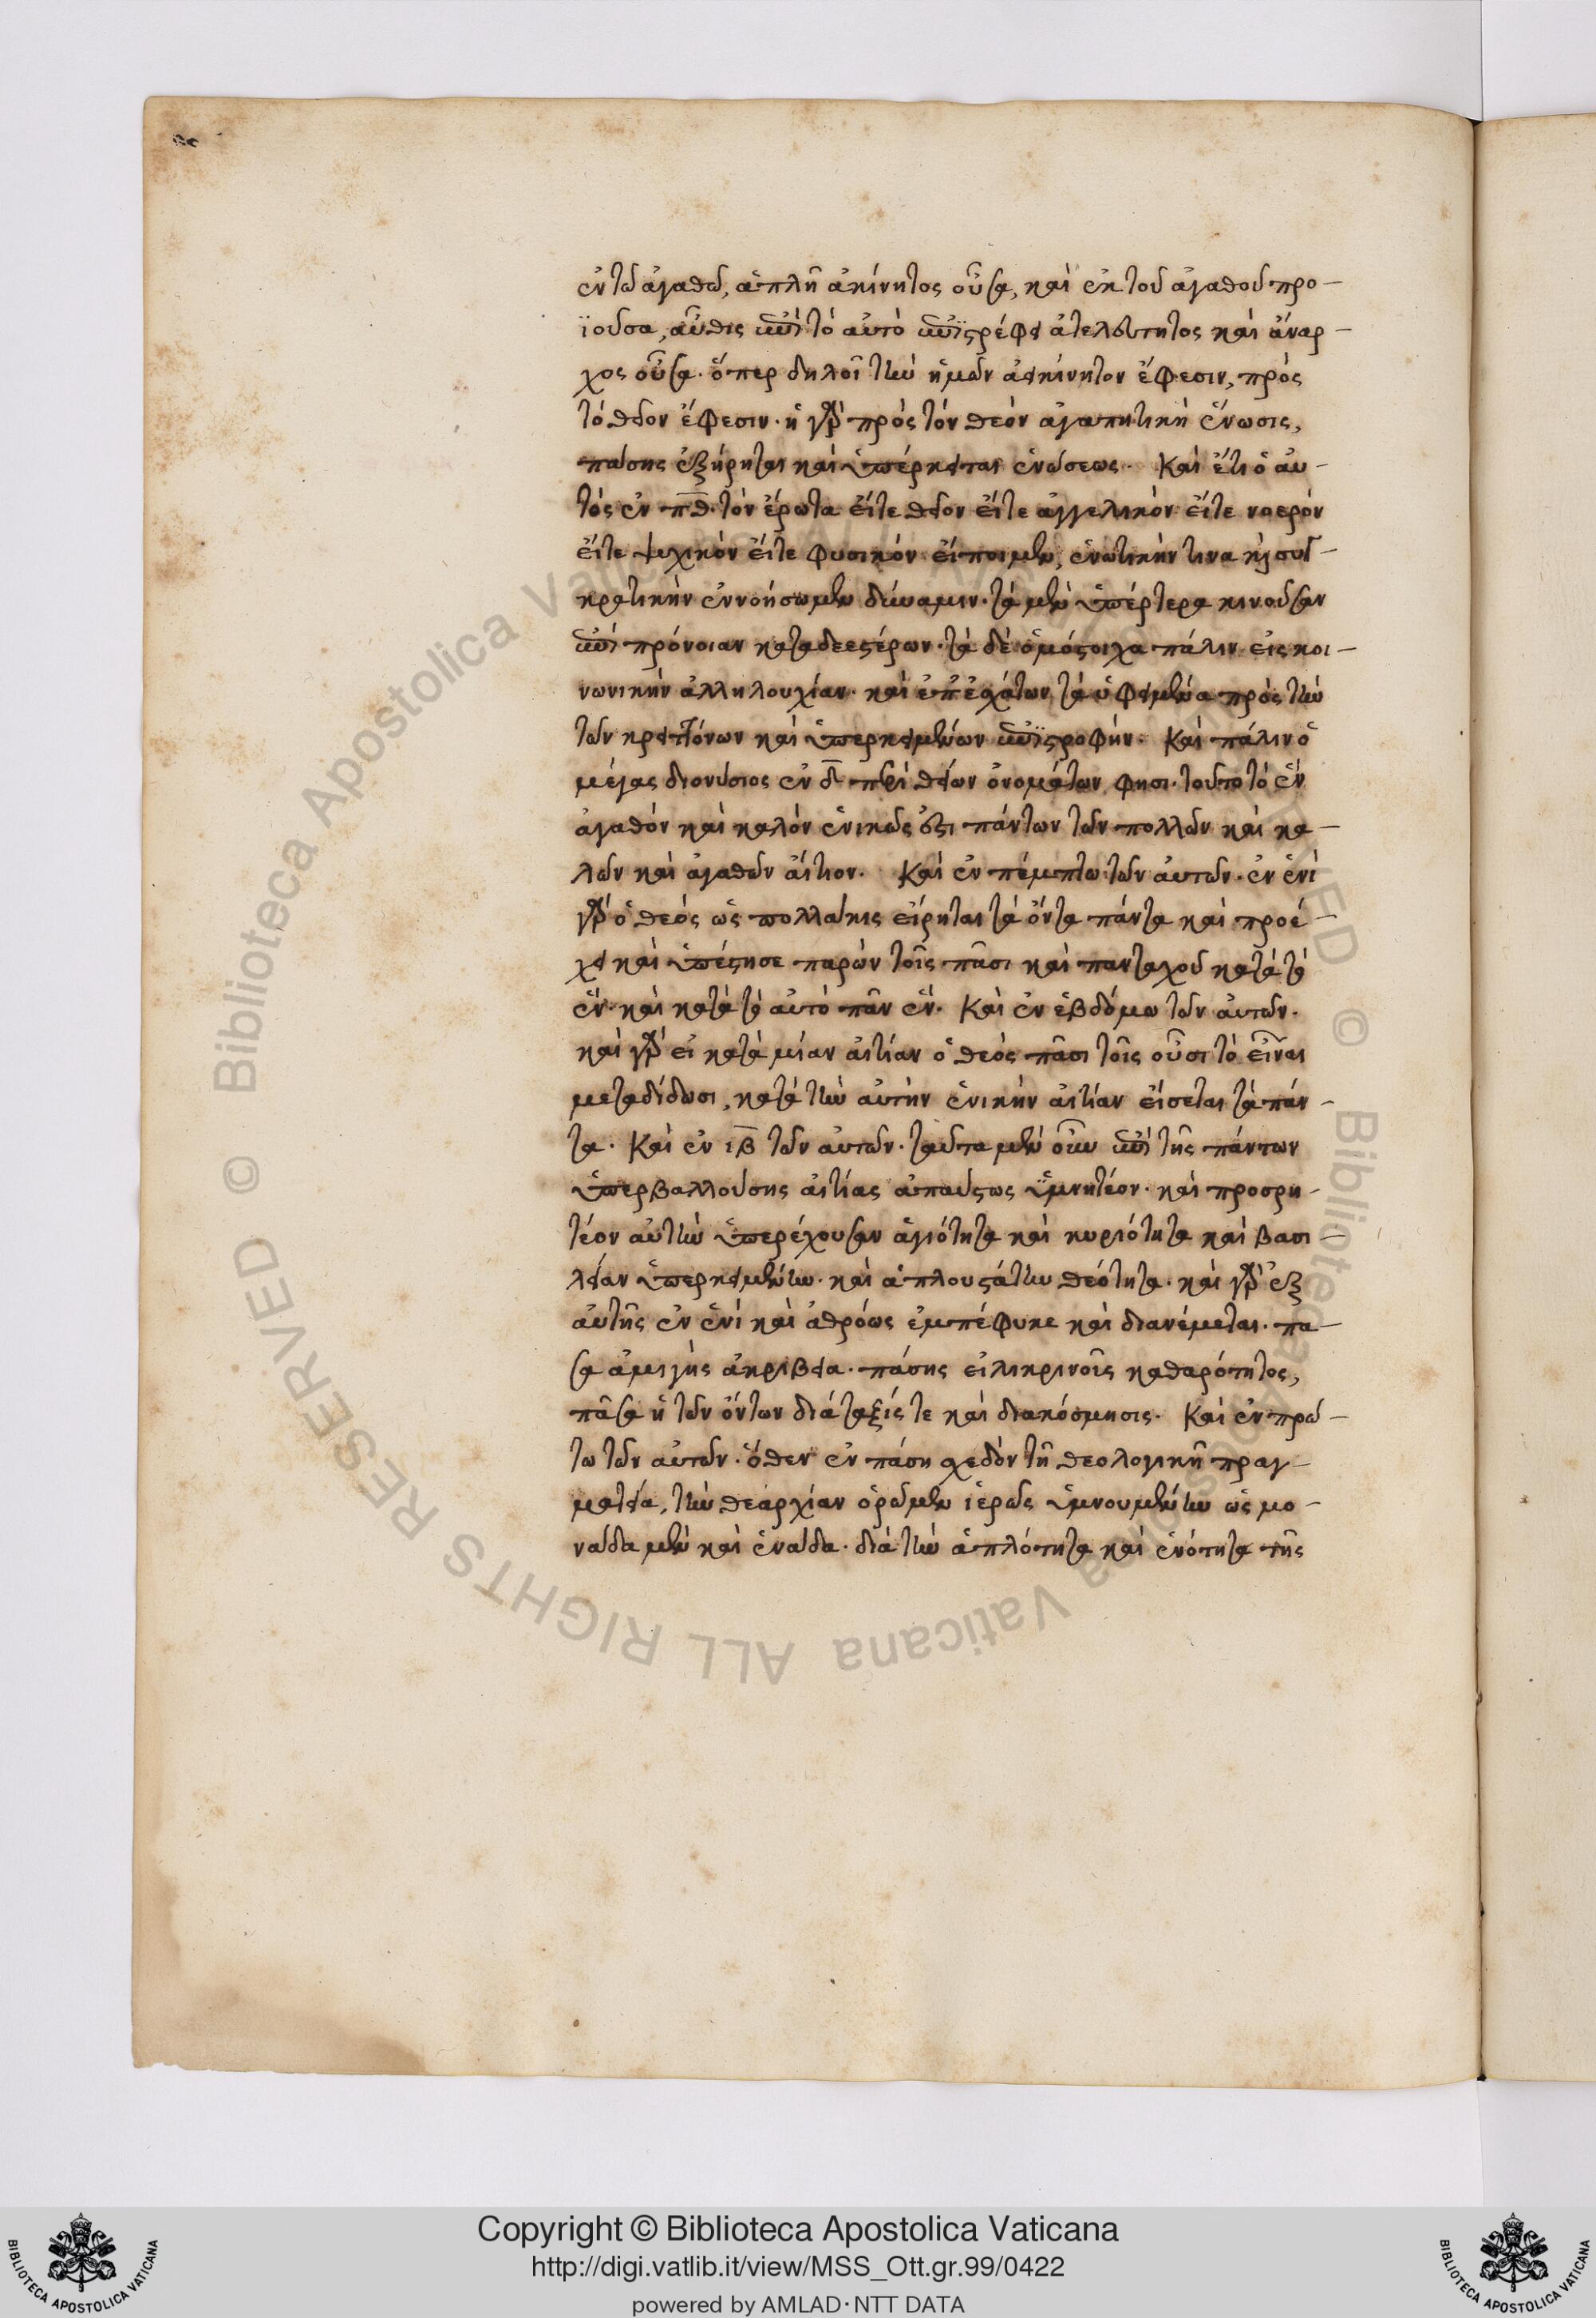 ἐν τῷ ἀγαθῷ, ἁπλῆ ἀκίνητος οὖσα, καὶ ἐκ τοῦ ἀγαθοῦ προ-
ϊοῦσα, αὖθις ἐπὶ τὸ αὐτὸ ἐπιστρέφει ἀτελεύτητος καὶ ἄναρ-
χος οὖσα. ὅπερ δηλοῖ τὴν ἡμῶν ἀεικίνητον ἔφεσιν, πρὸς
τὸ θεῖον ἔφεσιν. ἡ γὰρ πρὸς τὸν θεὸν ἀγαπητικὴ ἕνωσις,
πάσης ἐξήρηται καὶ ὑπέρκειται ἑνώσεως. Καὶ ἔτι ὁ αὐ-
τὸς ἐν π. θ. τὸν ἔρωτα εἴτε θεῖον εἴτε ἀγγελικὸν εἴτε νοερὸν
εἴτε ψυχικὸν εἴτε φυσικὸν εἴποιμεν, ἑνωτικήν τινα καὶ συγ-
κρατικὴν ἐννοήσωμεν δύναμιν. τὰ μὲν ὑπέρτερα κινοῦσαν
ἐπὶ πρόνοιαν καταδεεστέρων. τὰ δὲ ὁμόστοιχα πάλιν εἰς κοι-
νωνικὴν ἀλληλουχίαν. καὶ ἐπ' ἐσχάτων τὰ ὑφειμένα πρὸς τὴν
τῶν κρειττόνων καὶ ὑπερκειμένων ἐπιστροφήν. Καὶ πάλιν ὁ
μέγας διονύσιος ἐν δ περὶ θείων ὀνομάτων φησι. τοῦτο τὸ ἓν
ἀγαθὸν καὶ καλὸν ἑνικῶς ἐστι πάντων τῶν πολλῶν καὶ κα-
λῶν καὶ ἀγαθῶν αἴτιον. Καὶ ἐν πέμπτω τῶν αὐτῶν. ἐν ἑνὶ
γὰρ ὁ θεός ὡς πολλάκις εἴρηται τὰ ὄντα πάντα καὶ προέ-
χει καὶ ὑπέστησε παρὼν τοῖς πᾶσι καὶ πανταχοῦ κατὰ τὸ
ἕν. καὶ κατὰ τὸ αὐτὸ πᾶν ἕν. Καὶ ἐν ἑβδόμω τῶν αὐτῶν.
καὶ γὰρ εἰ κατὰ μίαν αἰτίαν ὁ θεὸς πᾶσι τοῖς οὖσι τὸ εἶναι
μεταδίδωσι, κατὰ τὴν αὐτὴν ἑνικὴν αἰτίαν εἴσεται τὰ πάν-
τα. Καὶ ἐν ιβ τῶν αὐτῶν. ταῦτα μὲν οὖν ἐπὶ τῆς πάντων
ὑπερβαλλούσης αἰτίας ἀπαύστως ὑμνητέον. καὶ προσρη-
τέον αὐτὴν ὑπερέχουσαν ἁγιότητα καὶ κυριότητα καὶ βασι-
λείαν ὑπερκειμένην. καὶ ἁπλουστάτην θεότητα. καὶ γὰρ ἐξ
αὐτῆς ἐν ἑνὶ καὶ ἀθρόως ἐμπέφυκε καὶ διανέμεται. πᾶ-
σα ἀμιγὴς ἀκρίβεια. πάσης εἰλικρινοῖς καθαρότητος,
πᾶσα ἡ τῶν ὄντων διάταξίς τε καὶ διακόσμησις. Καὶ ἐν πρώ-
τω τῶν αὐτῶν. ὅθεν ἐν πάση σχεδὸν τῆ θεολογικῆ πραγ-
ματεία, τὴν θεαρχίαν ὁρῶμεν ἱερῶς ὑμνουμένην ὡς μο-
νάδα μὲν καὶ ἑνάδα. διὰ τὴν ἁπλότητα καὶ ἑνότητα τῆς
Copyright © Biblioteca Apostolica Vaticana
http://digi.vatlib.it/view/MSS_Ott.gr.99/0422
powered by AMLAD·NTT DATA
BIBLIOTECA APOSTOLICA VATICANA
BIBLIOTECA APOSTOLICA VATICANA
© Biblioteca Apostolica Vaticana ALL RIGHTS RESERVED